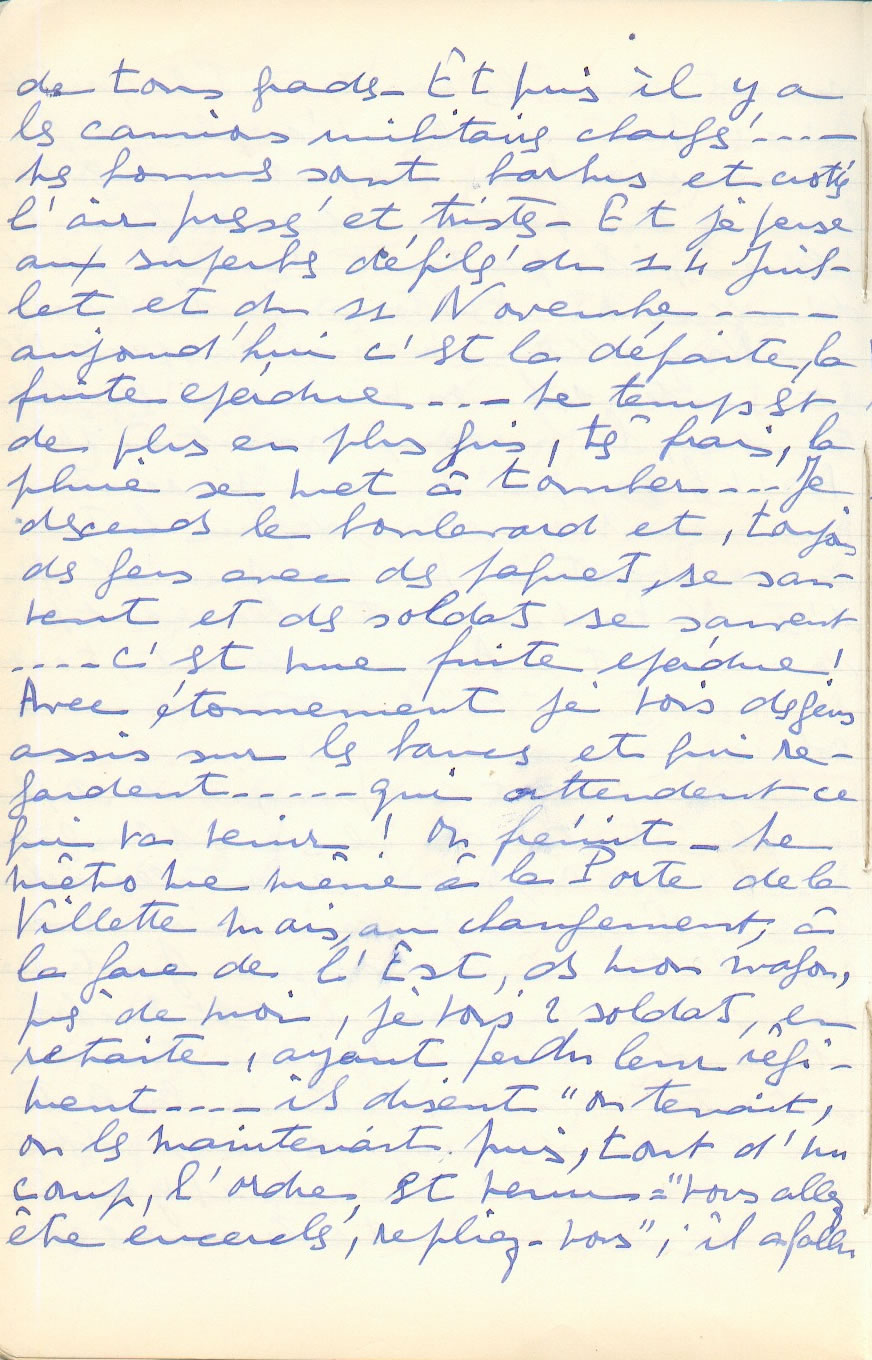 de tous grades - Et puis il y a
les camions militaires chargés ----
les hommes sont barbus et crottés
l'air pressé et tristes - Et je pense
aux superbes défilés du 14 Juil-
let et du 11 Novembre ----
aujourd'hui c'est la défaite, la
fuite éperdue --- Le temps est
de plus en plus gris, très frais, la
pluie se met à tomber --- Je
descends le boulevard et, toujours
des gens avec des paquets, se sau-
vent et des soldats se sauvent
---- c'est une fuite éperdue !
Avec étonnement je vois des gens
assis sur les bancs et qui re-
gardent ----- qui attendent ce
qui va venir ! On frémit - Le
métro me mène à la Porte de la
Villette mais, au changement, à
la gare de l'Est, ds mon wagon,
près de moi, je vois 2 soldats, en
retraite, ayant perdu leur régi-
ment ---- ils disent "on tenait,
on les maintenait. puis, tout d'un
coup, l'ordre, est venu = "vous allez
être encerclés, repliez-vous", il a fallu